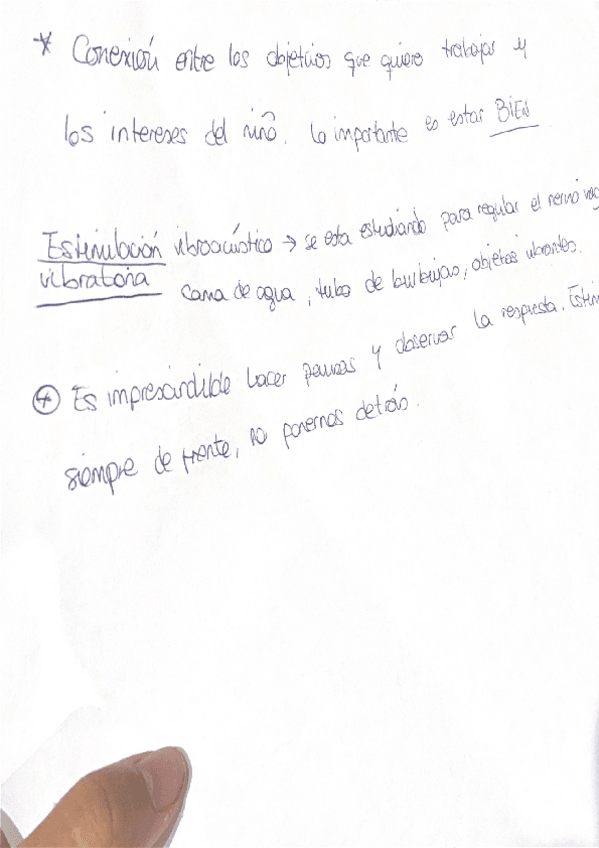 * Conexión entre los objetivos que quiero trabajar y
los intereses del niño. Lo importante es estar BIEN
Estimulación vibroacústico → se esta estudiando para regular el nervio vag
vibratoria cama de agua, tubo de burbujas, objetos vibrantes.
+ Es imprescindible hacer pausas y observar la respuesta. Estim
siempre de frente, no ponernos detrás.